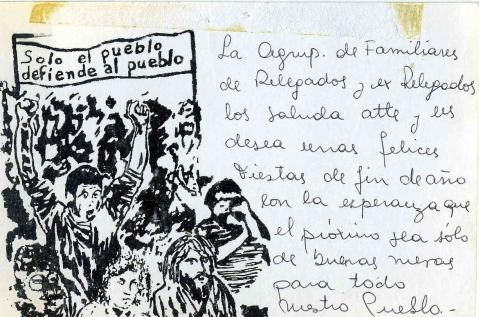 Solo el pueblo
defiende al pueblo
La Agrup. de Familiares
de Relegados y ex Relegados
los saluda atte y les
desea unas felices
Fiestas de fin de año
con la esperanza que
el próximo sea sólo
de buenas nuevas
para todo
nuestro Pueblo.-